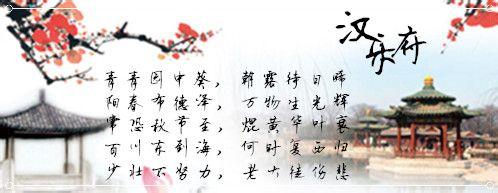 汉乐府
青青园中葵, 朝露待日晞
阳春布德泽, 万物生光辉
常恐秋节至, 焜黄华叶衰
百川东到海, 何时复西归
少壮不努力, 老大徒伤悲